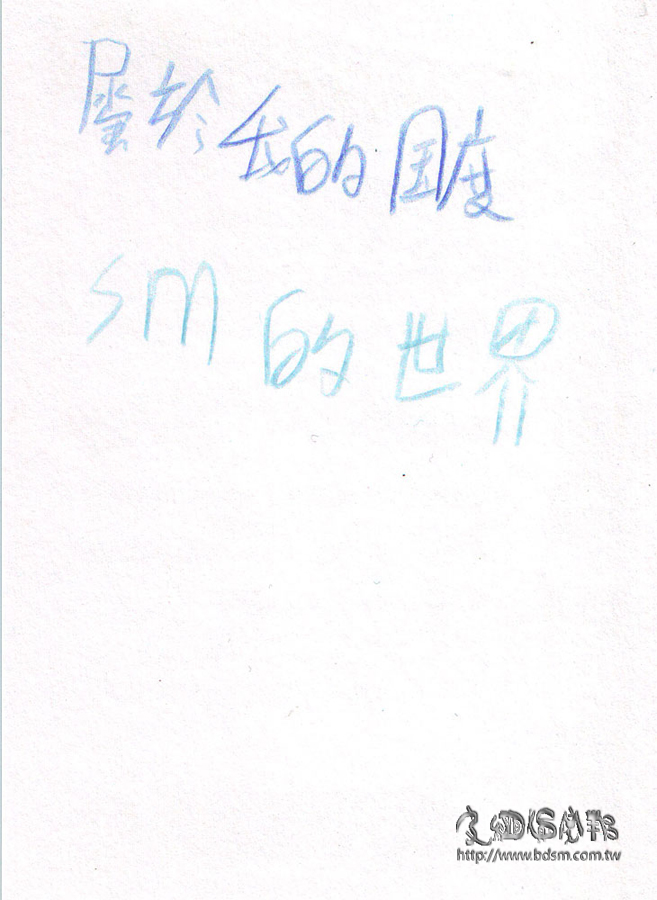 屬於我的国度
SM的世界
http://www.bdsm.com.tw